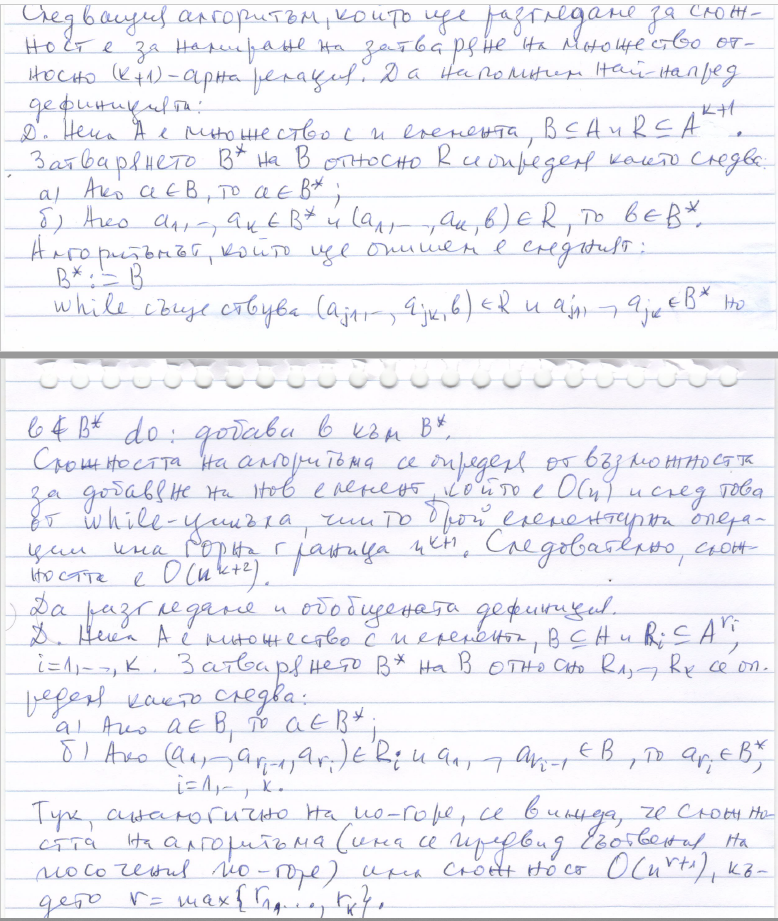 Следващия алгоритъм, който ще разгледаме за слож-
ност е за намиране на затваряне на множество от-
носно (k+1)-арна релация. Да напомним най-напред
дефиницията:
Д. Нека A е множество с n елемента, B ⊆ A и R ⊆ A^{k+1}.
Затварянето B* на B относно R се определя както следва:
а) Ако a ∈ B, то a ∈ B*;
б) Ако a₁, –, a_k ∈ B* и (a₁, –, a_k, b) ∈ R, то b ∈ B*.
Алгоритъмът, който ще опишем е следният:
B* := B
while съществува (a_{j1}, –, a_{jk}, b) ∈ R и a_{j1}, –, a_{jk} ∈ B* но
b ∉ B* do: добави b към B*.
Сложността на алгоритъма се определя от възможността
за добавяне на нов елемент, който е O(n) и след това
от while-цикъла, чиито брой елементарни опера-
ции има горна граница n^{k+1}. Следователно, слож-
ността е O(n^{k+2}).
Да разгледаме и обобщената дефиниция.
Д. Нека A е множество с n елемента, B ⊆ A и R_i ⊆ A^{r_i},
i=1, –, k. Затварянето B* на B относно R₁, –, R_k се оп-
ределя както следва:
а) Ако a ∈ B, то a ∈ B*;
б) Ако (a₁, –, a_{r_i-1}, a_{r_i}) ∈ R_i и a₁, –, a_{r_i-1} ∈ B, то a_{r_i} ∈ B*,
i=1, –, k.
Тук, аналогично на по-горе, се вижда, че сложно-
стта на алгоритъма (има се предвид съответния на
посочения по-горе) има сложност O(n^{r+1}), къ-
дето r = max{r₁, ..., r_k}.